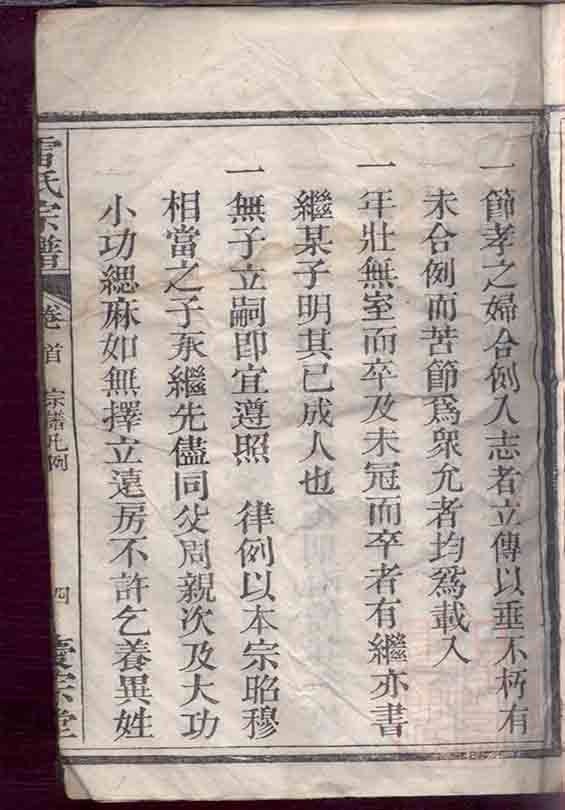 一節孝之婦合例入志者立傳以垂不朽有
未合例而苦節爲衆允者均爲載入
一年壯無室而卒及未冠而卒者有繼亦書
繼某子明其已成人也
一無子立嗣即宜遵照　律例以本宗昭穆
相當之子承繼先儘同父周親次及大功
小功緦麻如無擇立遠房不許乞養異姓
雷氏宗譜　卷首　宗譜凡例　四